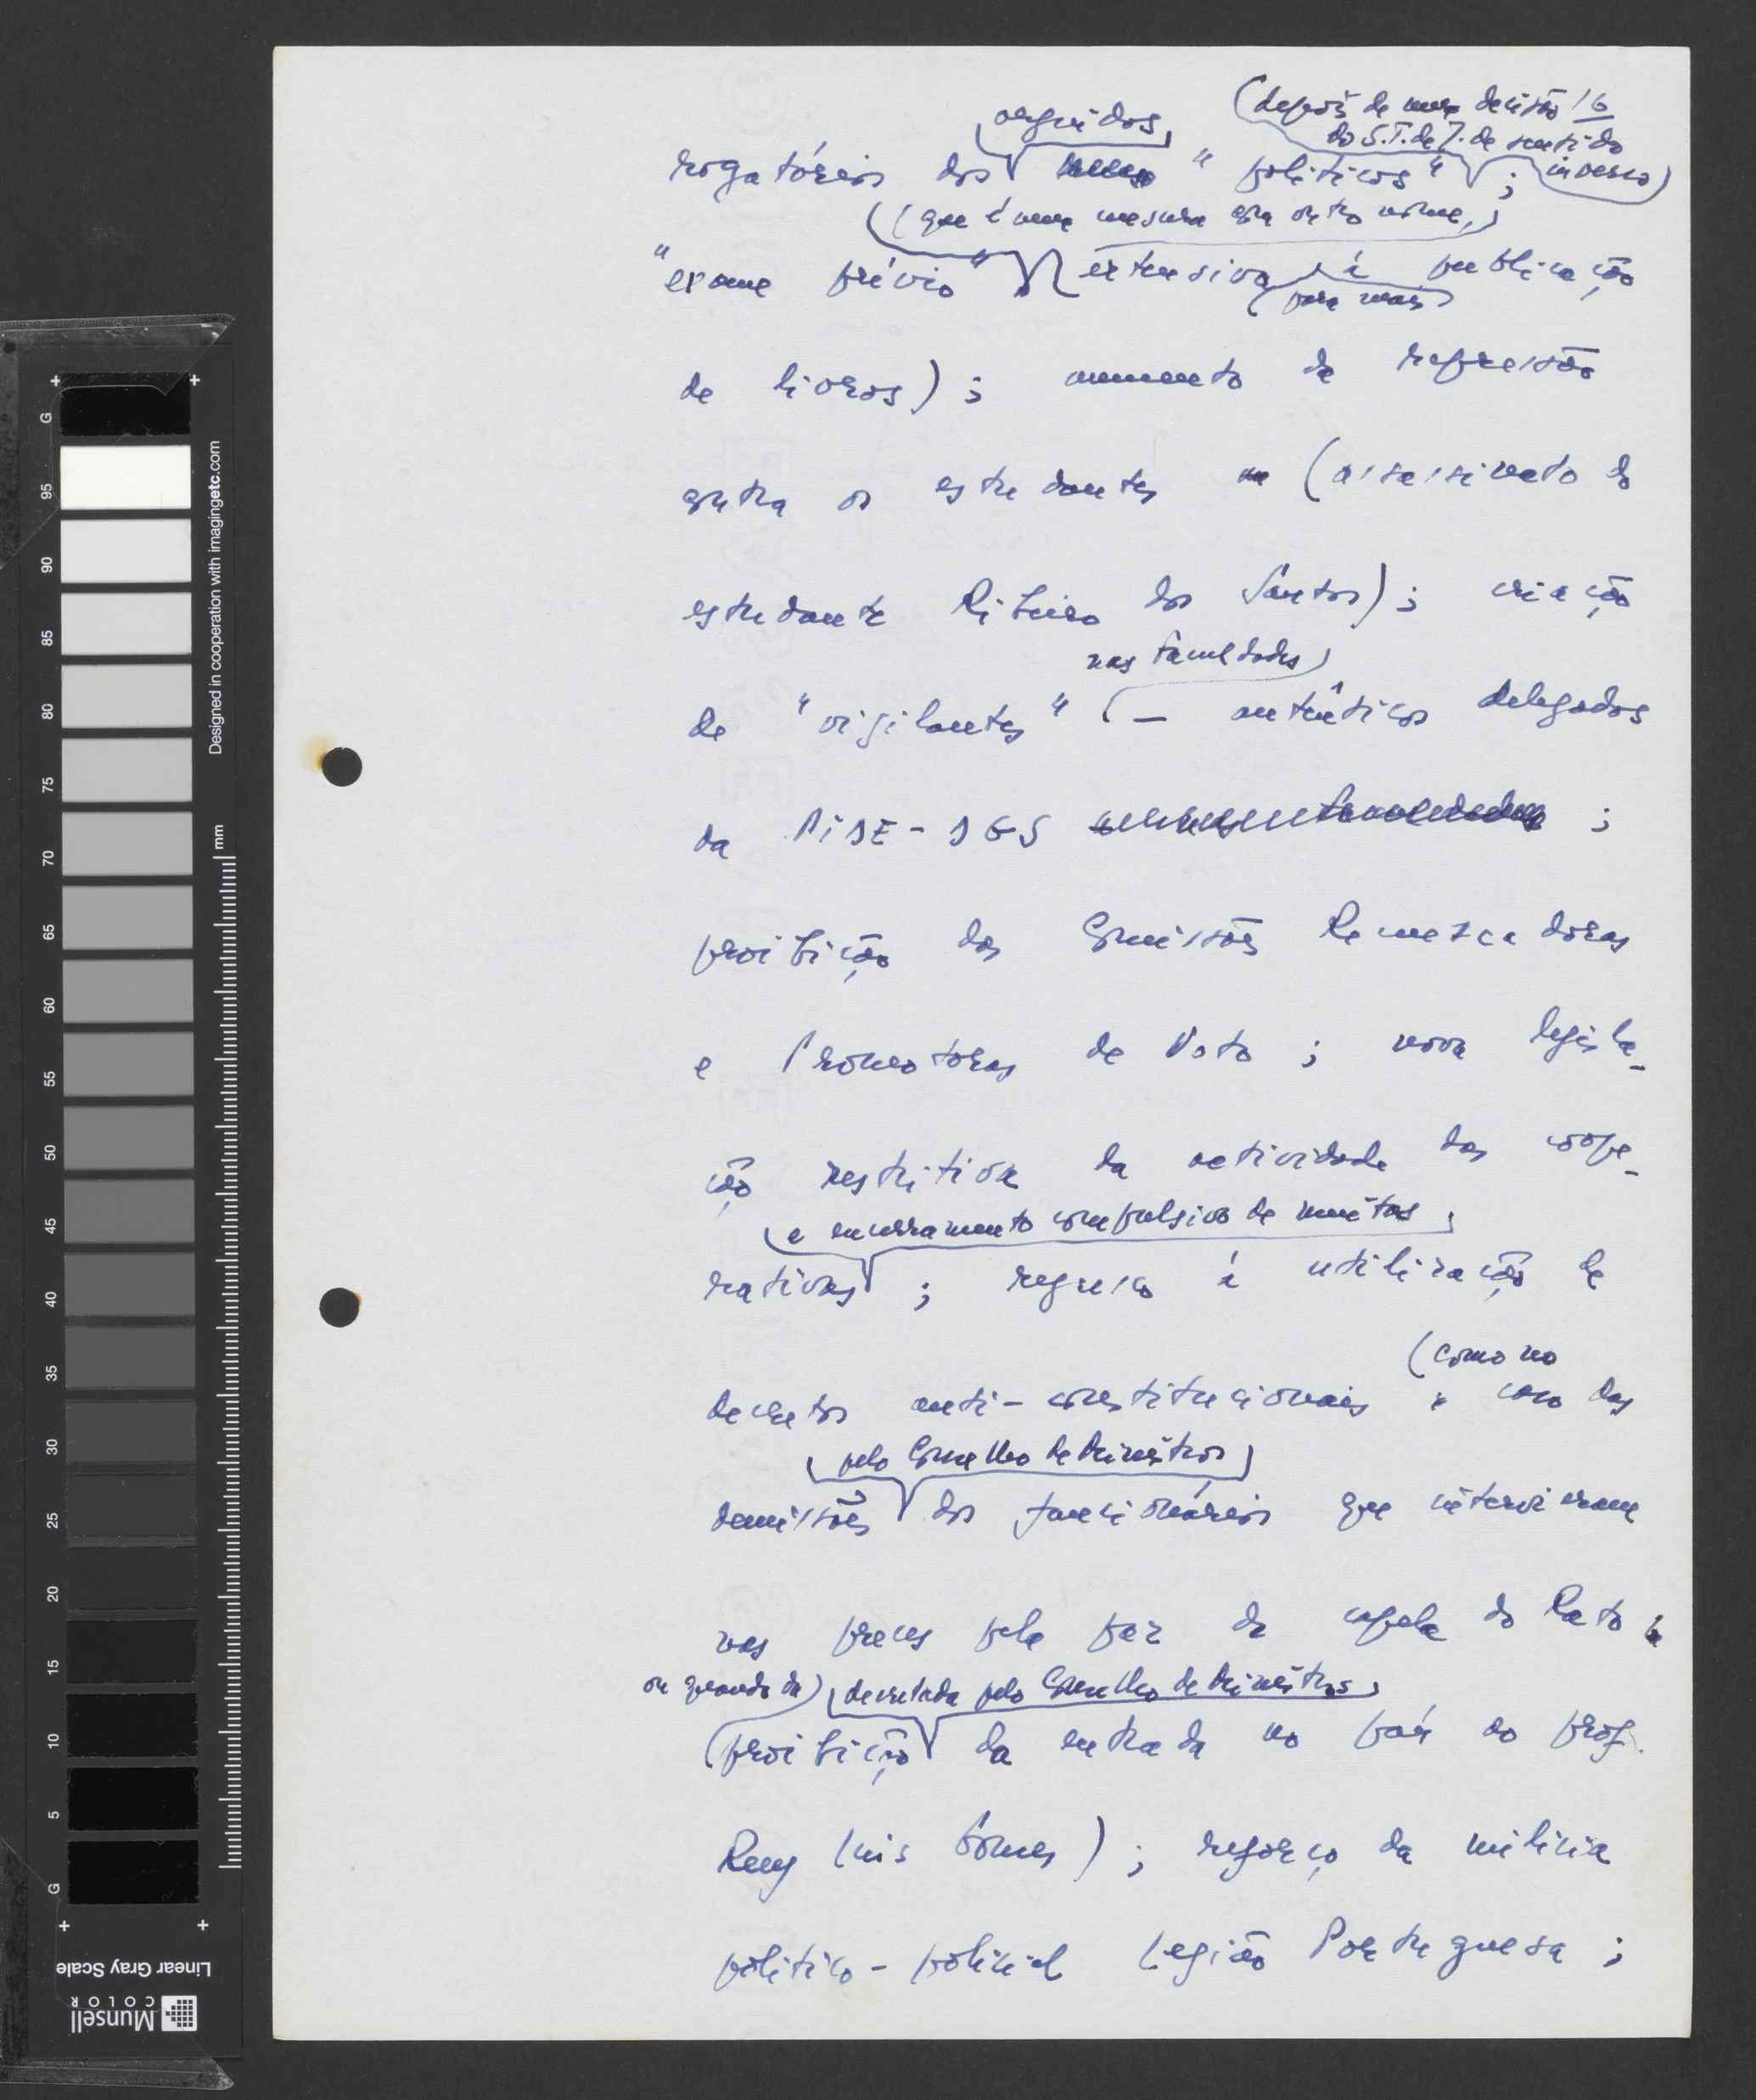 (depois de uma decisão 16
arguidos do S.T. de J. de sentido
rogatórios dos "políticos" ; inverso)
(que é uma mesura com outro nome,)
"exame prévio" extensivo à publicação
(para mais)
de livros) ; aumento da repressão
contra os estudantes (assassinato do
estudante Ribeiro dos Santos) ; criação
nas Faculdades
de "vigilantes" – autênticos delegados
da PIDE-DGS ;
proibição das Comissões Recenseadoras
e Promotoras de Voto ; nova legisla-
ção restritiva da actividade das coope-
e encerramento compulsivo de muitas
rativas ; regresso à utilização de
(como no
decretos anti-constitucionais caso das
pelo Conselho de Ministros
demissões dos funcionários que intervieram
nas preces pela paz da capela do Rato
ou quando da decretada pelo Conselho de Ministros
(proibição da entrada no país ao prof.
Ruy Luís Gomes) ; reforço da milícia
político-policial Legião Portuguesa ;
Designed in cooperation with imagingetc.com
mm
G 95 90 85 80 75 70 65 60 55 50 45 40 35 30 25 20 15 10 5 G
Linear Gray Scale
Munsell
COLOR